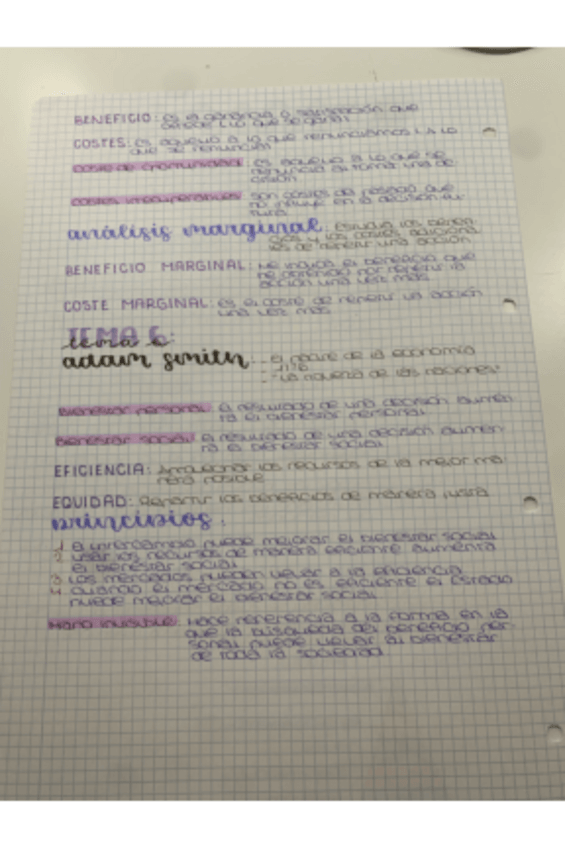 BENEFICIO: es la ganancia o satisfacción que
COSTES: es aquello a lo que renunciamos
que se renunció
coste de oportunidad: es aquello a lo que se
renuncia al tomar una de-
cisión
costes irrecuperables: son costes del pasado que
no influye en la decisión fu-
tura
análisis marginal: Estudia los benefi-
cios y los costes adiciona-
les de repetir una acción
BENEFICIO MARGINAL: Me indica el beneficio que
he obtenido por repetir la
acción una vez más
COSTE MARGINAL: es el coste de repetir una acción
una vez más
TEMA 6:
tema 6
adam smith: - el padre de la economía
- 1776
- "La riqueza de las naciones"
Bienestar personal: el resultado de una decisión aumen-
ta el bienestar personal
Bienestar social: el resultado de una decisión aumen-
ta el bienestar social
EFICIENCIA: Aprovechar los recursos de la mejor ma-
nera posible
EQUIDAD: Repartir los beneficios de manera justa
principios:
1 el intercambio puede mejorar el bienestar social
2 usar los recursos de manera eficiente aumenta
el bienestar social
3 Los mercados pueden llevar a la eficiencia
4 cuando el mercado no es eficiente el Estado
puede mejorar el bienestar social
Mano invisible: Hace referencia a la forma en la
que la búsqueda del beneficio per-
sonal puede llevar al bienestar
de toda la sociedad